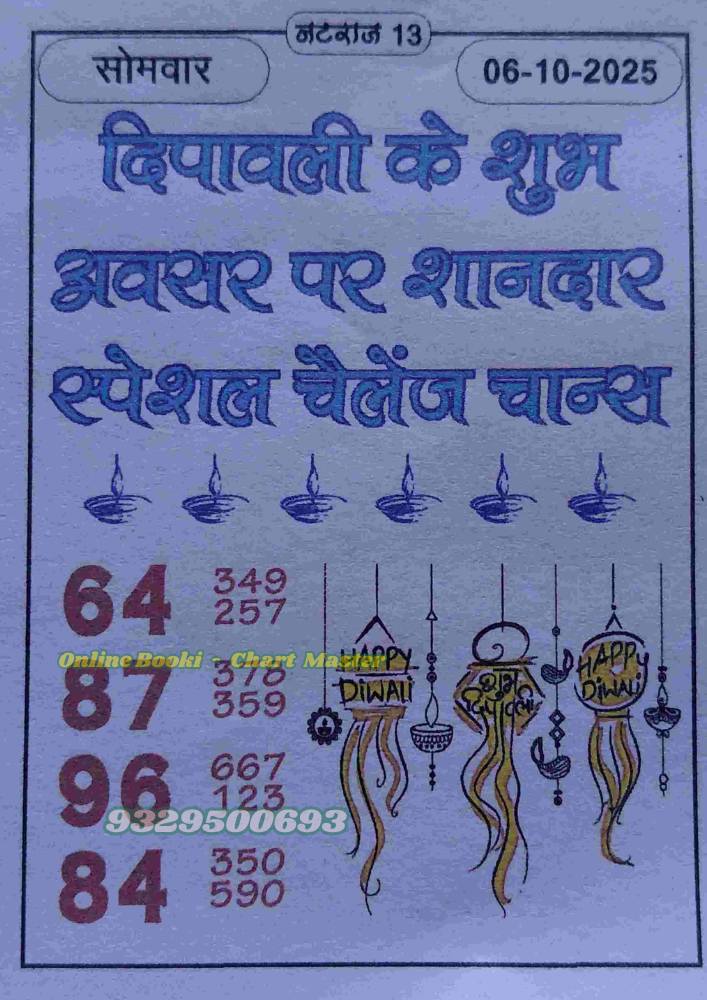 नटराज 13
सोमवार
06-10-2025
दिपावली के शुभ
अवसर पर शानदार
स्पेशल चैलेंज चान्स
64
349
257
Online Booki - Chart Master
87
378
359
96
667
123
9329500693
84
350
590
HAPPY
DiWALi
शुभ
HAPPY
DiWALi